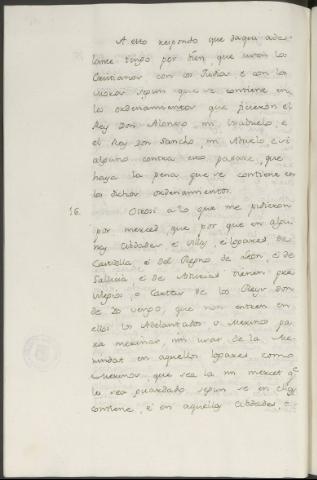 A esto respondo que daqui ade
lante tengo por bien que usen los
Christianos con los Judios e con los
Moros segun que se contiene en
los ordenamientos que ficieron el
Rey Don Alonso, mi bisabuelo, e
el Rey Don Sancho, mi Abuelo, e si
alguno contra eso pasare, que
haya la pena que se contiene en
los dichos ordenamientos.
16. Otrosi a lo que me pidieron
por merced, que por que en algu
nas Cibdades e Villas, e logares de
Castiella e del Regno de Leon, e de
Gallicia e de Asturias tienen pre
vilegios, o Cartas de los Reyes don
de Yo vengo, que non entren en
ellos los Adelantados o Merinos pa
ra merinar, nin usar de la Me
rindat en aquellos logares, como
Merinos, que sea la mi merced qe
les sea guardado segun se en ellos
contiene, e en aquellas Cibdades, e